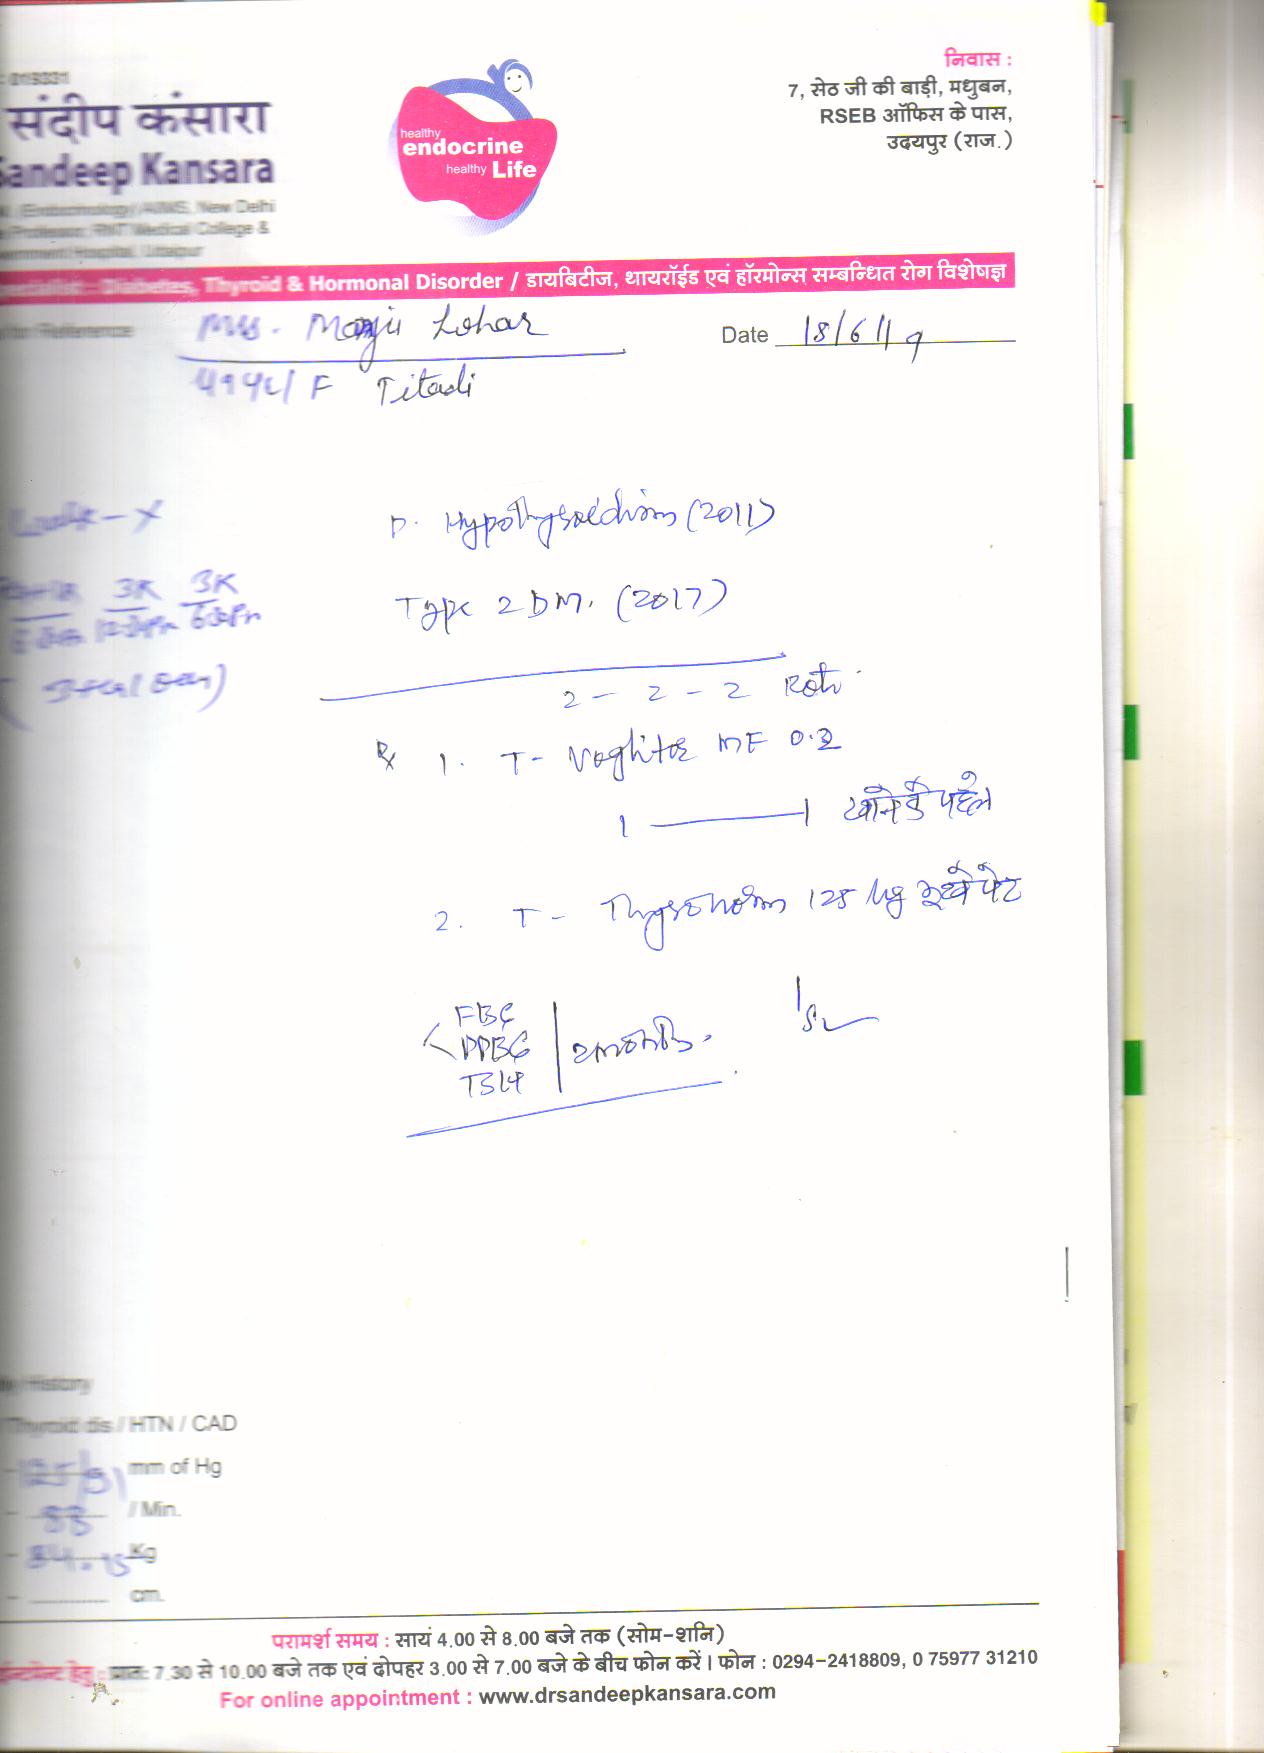 निवास :
7, सेठ जी की बाड़ी, मधुबन,
RSEB ऑफिस के पास,
उदयपुर (राज.)
संदीप कंसारा
Sandeep Kansara
(Endocrinology) AIIMS, New Delhi
Professor, RNT Medical College &
Hospital, Udaipur
healthy
endocrine
healthy Life
Diabetes, Thyroid & Hormonal Disorder / डायबिटीज, थायरॉईड एवं हॉरमोन्स सम्बन्धित रोग विशेषज्ञ
Reference Mrs. Manju Lohar
Date 18/6/19
49yr/F Titadi
P. Hypothyroidism (2011)
3K 3K
Type 2 DM. (2017)
2 - 2 - 2 Roti
Rx 1. T- Voglitor MF 0.2
1 — 1 खाने के पहले
2. T- Thyronorm 125 µg भूखे पेट
FBG
PPBG
TSH
2 months.
History
Thyroid dis / HTN / CAD
mm of Hg
88 / Min.
84.15 Kg
cm.
परामर्श समय : सायं 4.00 से 8.00 बजे तक (सोम-शनि)
हेतु : प्रातः 7.30 से 10.00 बजे तक एवं दोपहर 3.00 से 7.00 बजे के बीच फोन करें। फोन : 0294-2418809, 0 75977 31210
For online appointment : www.drsandeepkansara.com